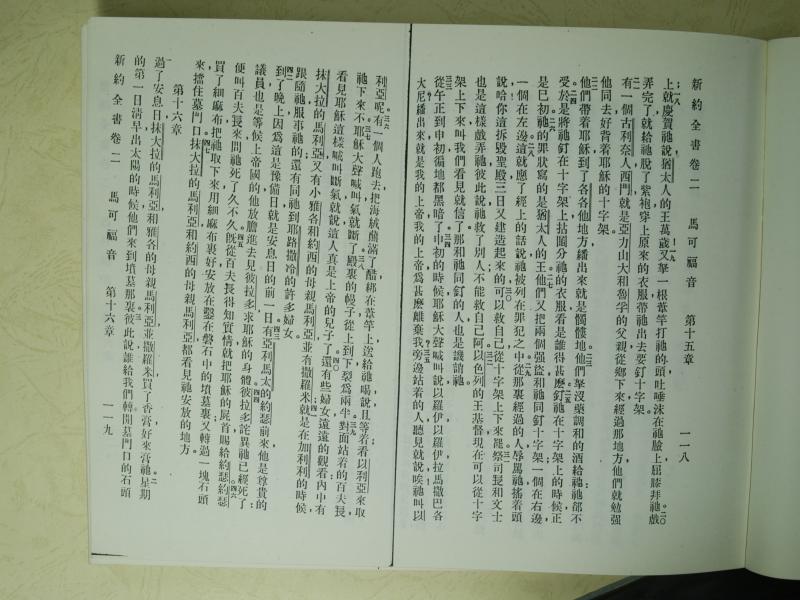 新約全書卷二 馬可福音 第十五章 一一八
上就慶賀祂說猶太人的王萬歲又拏一根葦竿打祂的頭吐唾沫在祂臉上屈膝拜祂戲
弄完了就給祂脫了紫袍穿上原來的衣服帶祂出去要釘十字架
有一個古利奈人西門就是亞力山大和魯孚的父親從鄉下來經過那地方他們就勉强
他同去好背着耶穌的十字架
他們帶着耶穌到了各各他地方繙出來就是髑髏地他們拏沒藥調和的酒給祂祂卻不
受於是將祂釘在十字架上拈鬮分祂的衣服看是誰得甚麼釘祂在十字架上的時候正
是巳初祂的罪狀寫的是猶太人的王他們又把兩個强盜和祂同釘十字架一個在右邊
一個在左邊這就應了經上的話說祂被列在罪犯之中從那裏經過的人辱罵祂搖着頭
說哈你這拆毀聖殿三日又建造起來的可以救自己從十字架上下來罷祭司長和文士
也是這樣戲弄祂彼此說祂救了別人不能救自己阿以色列的王基督現在可以從十字
架上下來叫我們看見就信了那和祂同釘的人也是譏誚祂
從午正到申初徧地都黑暗了申初的時候耶穌大聲喊叫說以羅伊以羅伊拉馬撒巴各
大尼繙出來就是我的上帝我的上帝爲甚麼離棄我旁邊站着的人聽見就說唉祂叫以
利亞呢有一個人跑去把海絨蘸滿了醋綁在葦竿上送給祂喝說且等着看以利亞來取
祂下來不耶穌大聲喊叫氣就斷了殿裏的幔子從上到下裂爲兩半對面站着的百夫長
看見耶穌這樣喊叫斷氣就說這人眞是上帝的兒子了還有些婦女遠遠的觀看內中有
抹大拉的馬利亞又有小雅各和約西的母親馬利亞並有撒羅米就是在加利利的時候
跟隨祂服事祂的還有同祂到耶路撒冷的許多婦女
到了晚上因爲這是豫備日就是安息日的前一日有亞利馬太的約瑟前來他是尊貴的
議員也是等候上帝國的他放膽進去見彼拉多求耶穌的身體彼拉多詫異祂已經死了
便叫百夫長來問祂死了久不久旣從百夫長得知實情就把耶穌的屍首賜給約瑟約瑟
買了細麻布把祂取下來用細麻布裹好安放在鑿在磐石中的墳墓裏又轉過一塊石頭
來擋住墓門口抹大拉的馬利亞和約西的母親馬利亞都看見祂安放的地方
第十六章
過了安息日抹大拉的馬利亞和雅各的母親馬利亞並撒羅米買了香膏好來膏祂星期
的第一日清早出太陽的時候他們來到墳墓那裏彼此說誰給我們轉開墓門口的石頭
新約全書卷二 馬可福音 第十六章 一一九